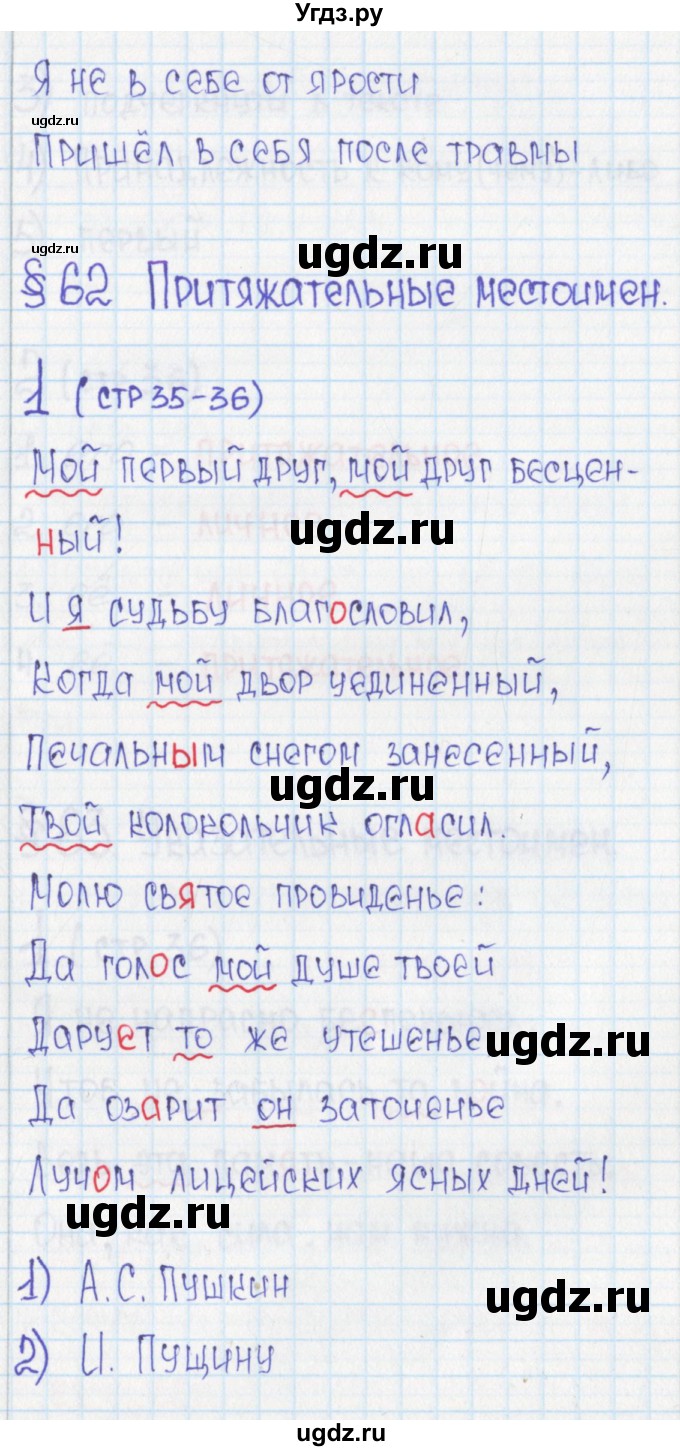 Угдз.ру
Я не в себе от ярости
ugdz.ru
Пришёл в себя после травмы
ugdz.ru
ugdz.ru
§ 62 Притяжательные местоимен.
1 (стр 35-36)
ugdz.ru
Мой первый друг, мой друг бесцен-
ugdz.ru
ный!
И я судьбу благословил,
ugdz.ru
Когда мой двор уединенный,
Печальным снегом занесенный,
ugdz.ru
ugdz.ru
Твой колокольчик огласил.
Молю святое провиденье:
Да голос мой душе твоей
ugdz.ru
Дарует то же утешенье
ugdz.ru
Да озарит он заточенье
Лучом лицейских ясных дней!
ugdz.ru
1) А.С. Пушкин
ugdz.ru
2) И. Пущину
ugdz.ru
ugdz.ru